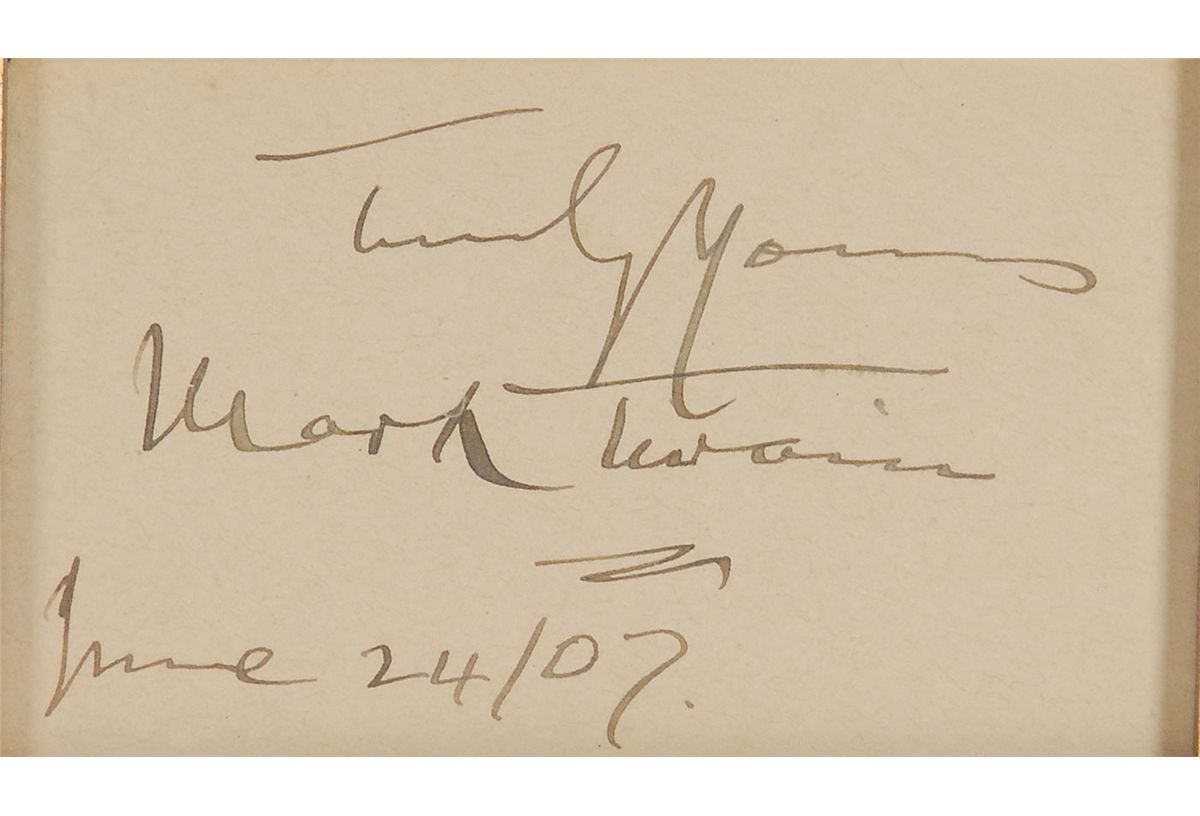 Truly Yours
Mark Twain
June 24/07.